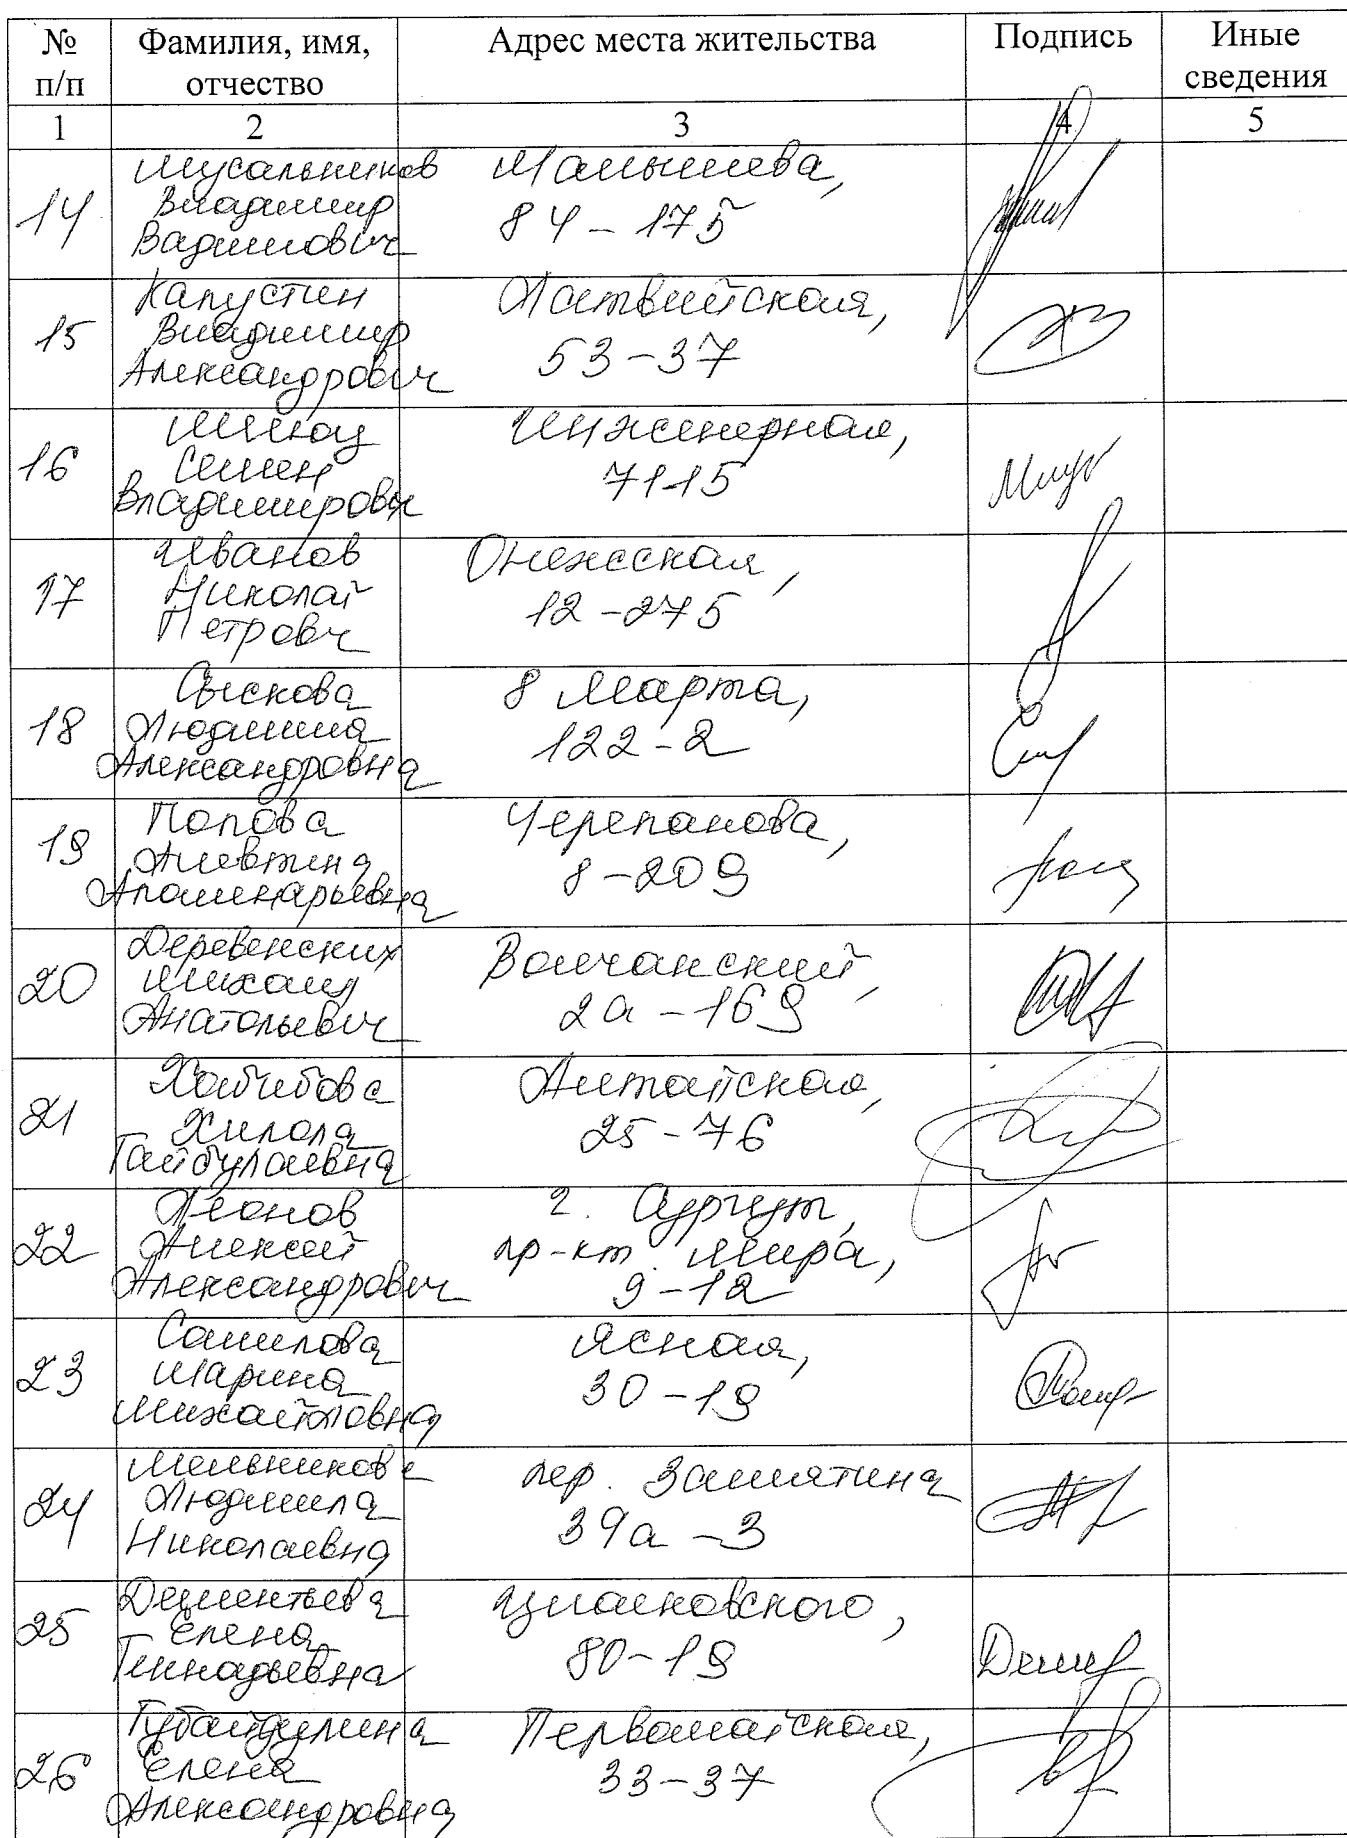 № п/п
Фамилия, имя, отчество
Адрес места жительства
Подпись
Иные сведения
1 2 3 4 5
14
Мусальников
Владимир
Вадимович
Малышева,
84-175
15
Капустин
Владимир
Александрович
Латвийская,
53-37
16
Семен
Владимирович
Инженерная,
17
Иванов
Николай
Петрович
Онежская,
12-275
18
Сыскова
Людмила
Александровна
8 Марта,
122-2
19
Попова
Алевтина
Черепанова,
8-209
20
Деревенских
Михаил
Анатольевич
Волчанский,
2а-169
21
Хабибова
Хилола
Гайбулаевна
Алтайская,
25-76
22
Леонов
Алексей
Александрович
г. Сургут,
пр-кт. Мира,
9-12
23
Самилова
Марина
Михайловна
Ясная,
30-19
24
Мельникова
Людмила
Николаевна
пер. Замятина
39а-3
25
Дементьева
Елена
Геннадьевна
Циолковского,
80-19
26
Губайдулина
Елена
Александровна
Первомайская,
33-37